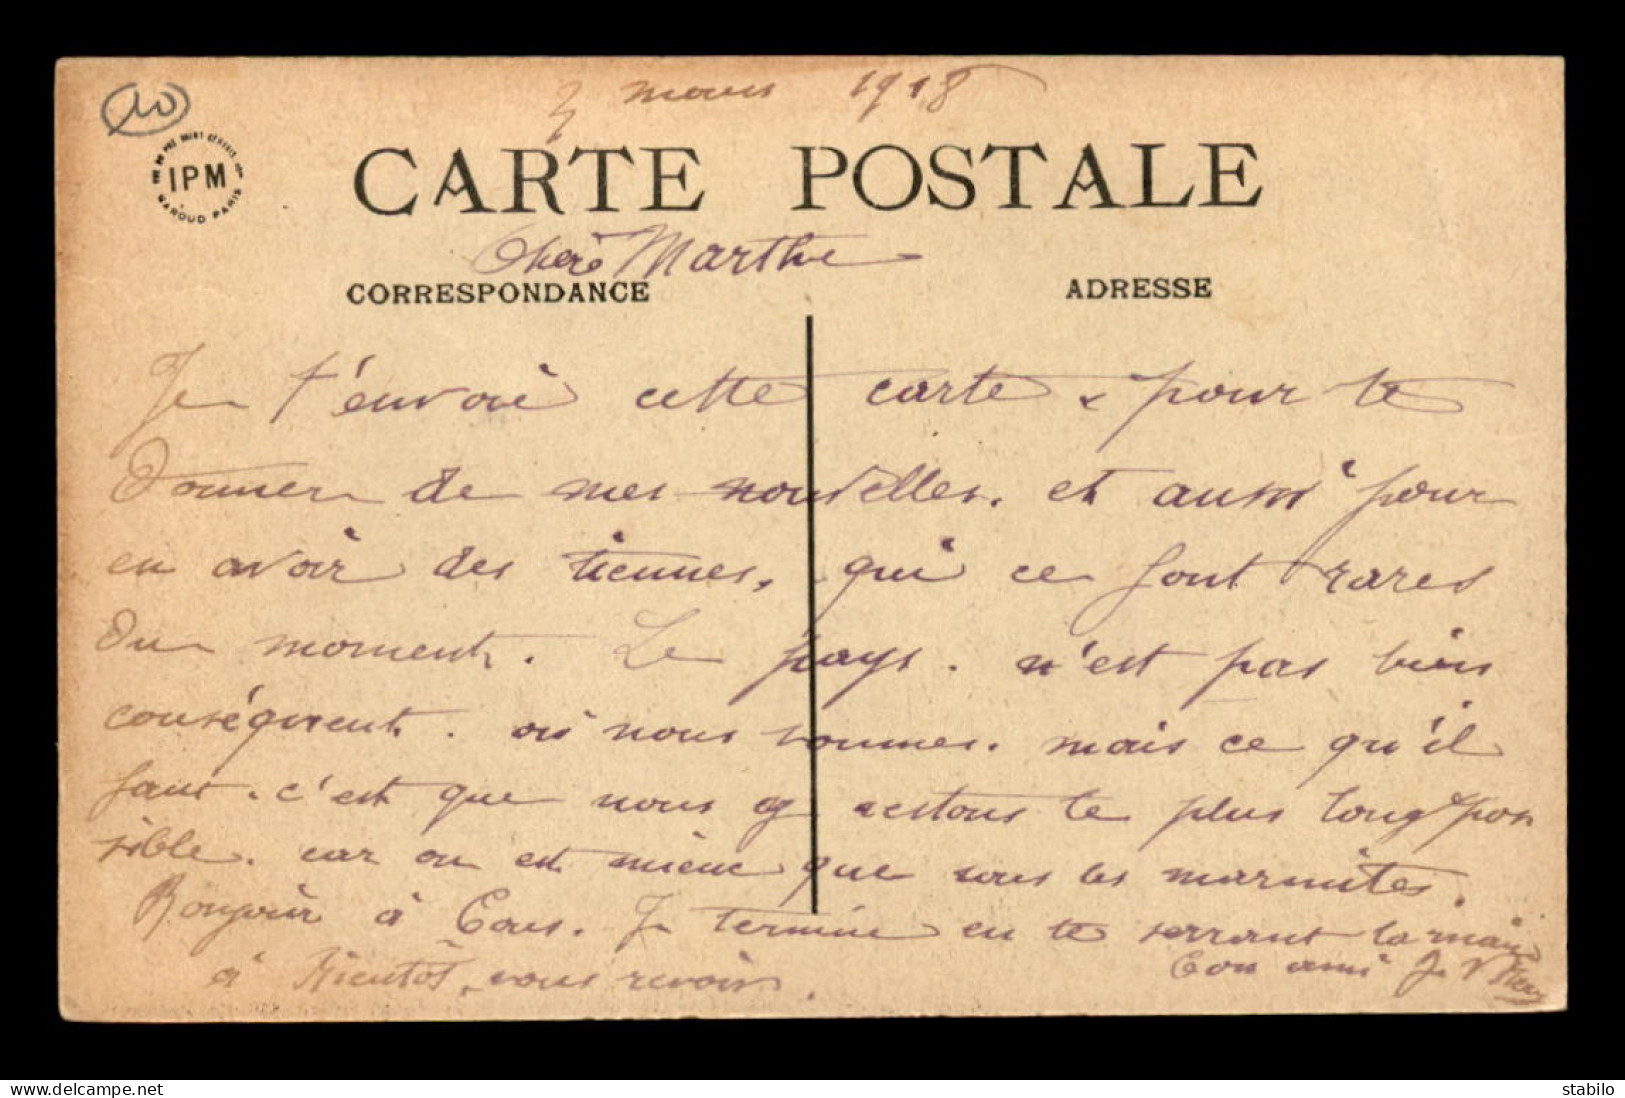 10
IPM
3 mars 1918
CARTE POSTALE
Chère Marthe
CORRESPONDANCE
ADRESSE
Je t'envoie cette carte pour te
Donner de mes nouvelles. et aussi pour
en avoir des tiennes, qui ce font rares
Du moment. Le pays. n'est pas bien
conséquent. où nous sommes. mais ce qu'il
faut. c'est que nous y restons le plus long pos
sible. car on est mieue que sous les marmites.
Bonjour à Tous. Je termine en te serrant la main
à Bientôt, vous revoir.
Ton ami J.
delcampe.net
stabilo